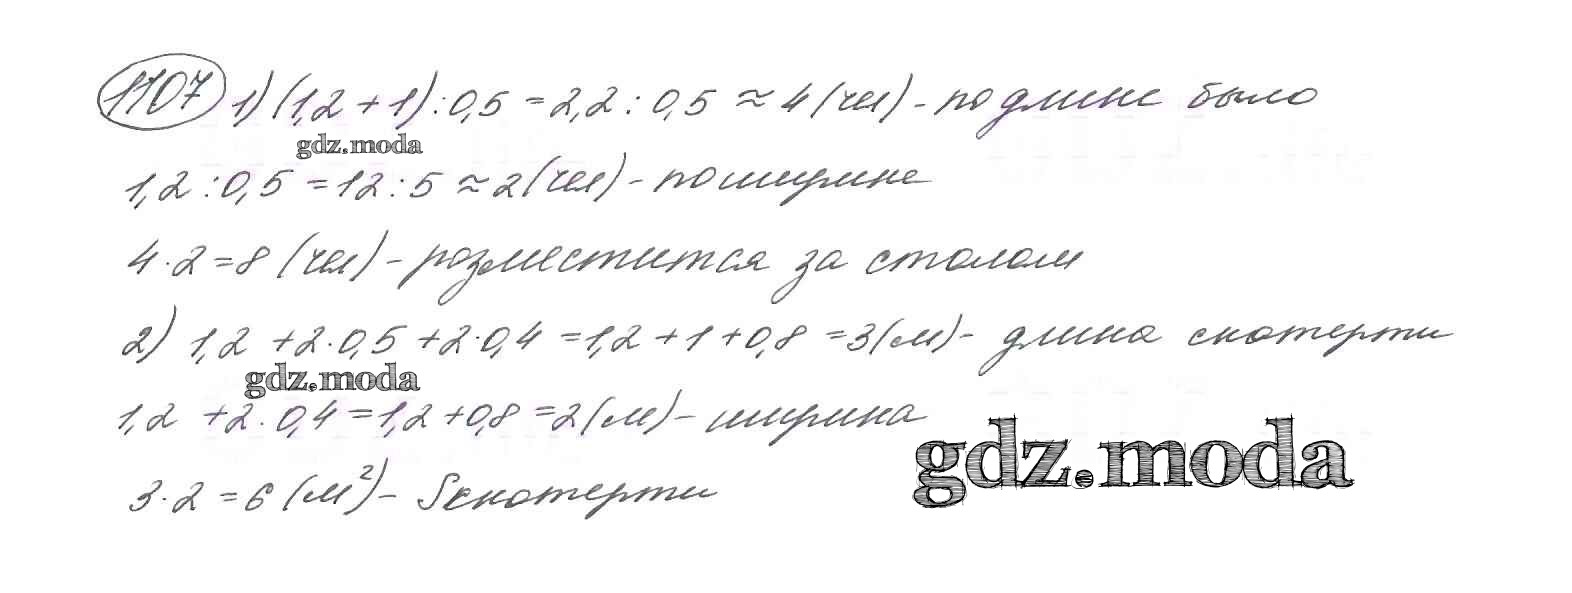 1107 1) (1,2 + 1) : 0,5 = 2,2 : 0,5 ≈ 4 (чел) - по длине было
gdz.moda
1,2 : 0,5 = 12 : 5 ≈ 2 (чел) - по ширине
4 · 2 = 8 (чел) - розместится за столом
2) 1,2 + 2 · 0,5 + 2 · 0,4 = 1,2 + 1 + 0,8 = 3 (м) - длина скатерти
gdz.moda
1,2 + 2 · 0,4 = 1,2 + 0,8 = 2 (м) - ширина
gdz.moda
3 · 2 = 6 (м²) - S скатерти